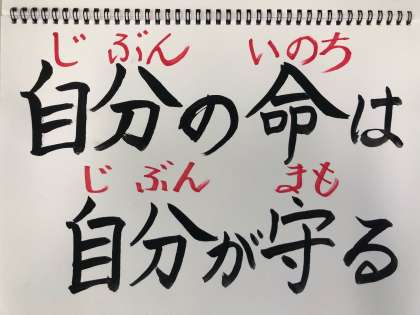 じぶん いのち
自分の命は
じぶん まも
自分が守る